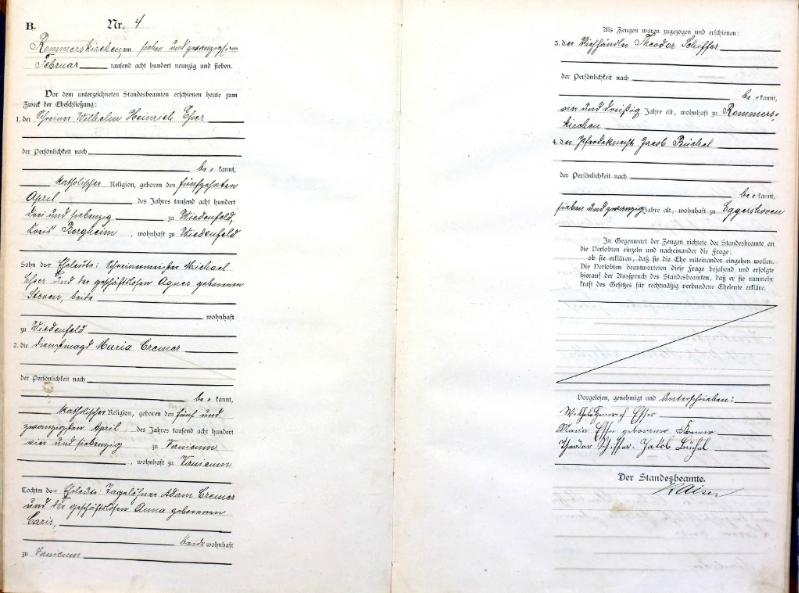 B. Nr. 4
Rommerskirchen, am sieben und zwanzigsten
Februar tausend acht hundert neunzig und sieben.
Vor dem unterzeichneten Standesbeamten erschienen heute zum
Zweck der Eheschließung:
1. der Schreiner Wilhelm Heinrich Esser
der Persönlichkeit nach
be kannt,
katholischer Religion, geboren den fünfzehnten
April des Jahres tausend acht hundert
drei und siebenzig zu Wiedenfeld,
Kreis Bergheim, wohnhaft zu Wiedenfeld
Sohn der Eheleute: Schreinermeister Michael
Esser und der geschäftslosen Agnes geborenen
beide
wohnhaft
zu Wiedenfeld
2. die Dienstmagd Maria Cremer
der Persönlichkeit nach
be kannt,
katholischer Religion, geboren den fünf und
zwanzigsten April des Jahres tausend acht hundert
vier und siebenzig zu Vanikum
, wohnhaft zu Vanikum
Tochter der Eheleute: Tagelöhner Adam Cremer
und der geschäftslosen Anna geborenen
beide wohnhaft
zu Vanikum
Als Zeugen waren zugezogen und erschienen:
3. der Viehhändler Theodor Schiffer
der Persönlichkeit nach
be kannt,
vier und dreißig Jahre alt, wohnhaft zu Rommers-
kirchen
4. der Pferdeknecht Jacob
der Persönlichkeit nach
be kannt,
sieben und zwanzig Jahre alt, wohnhaft zu Eggershoven
In Gegenwart der Zeugen richtete der Standesbeamte an
die Verlobten einzeln und nacheinander die Frage:
ob sie erklären, daß sie die Ehe miteinander eingehen wollen.
Die Verlobten beantworteten diese Frage bejahend und erfolgte
hierauf der Ausspruch des Standesbeamten, daß er sie nunmehr
kraft des Gesetzes für rechtmäßig verbundene Eheleute erkläre.
Vorgelesen, genehmigt und Unterschrieben:
Wilhelm Heinrich Esser
Maria Esser geborene Cremer
Theodor Schiffer. Jakob
Der Standesbeamte.
Kaiser